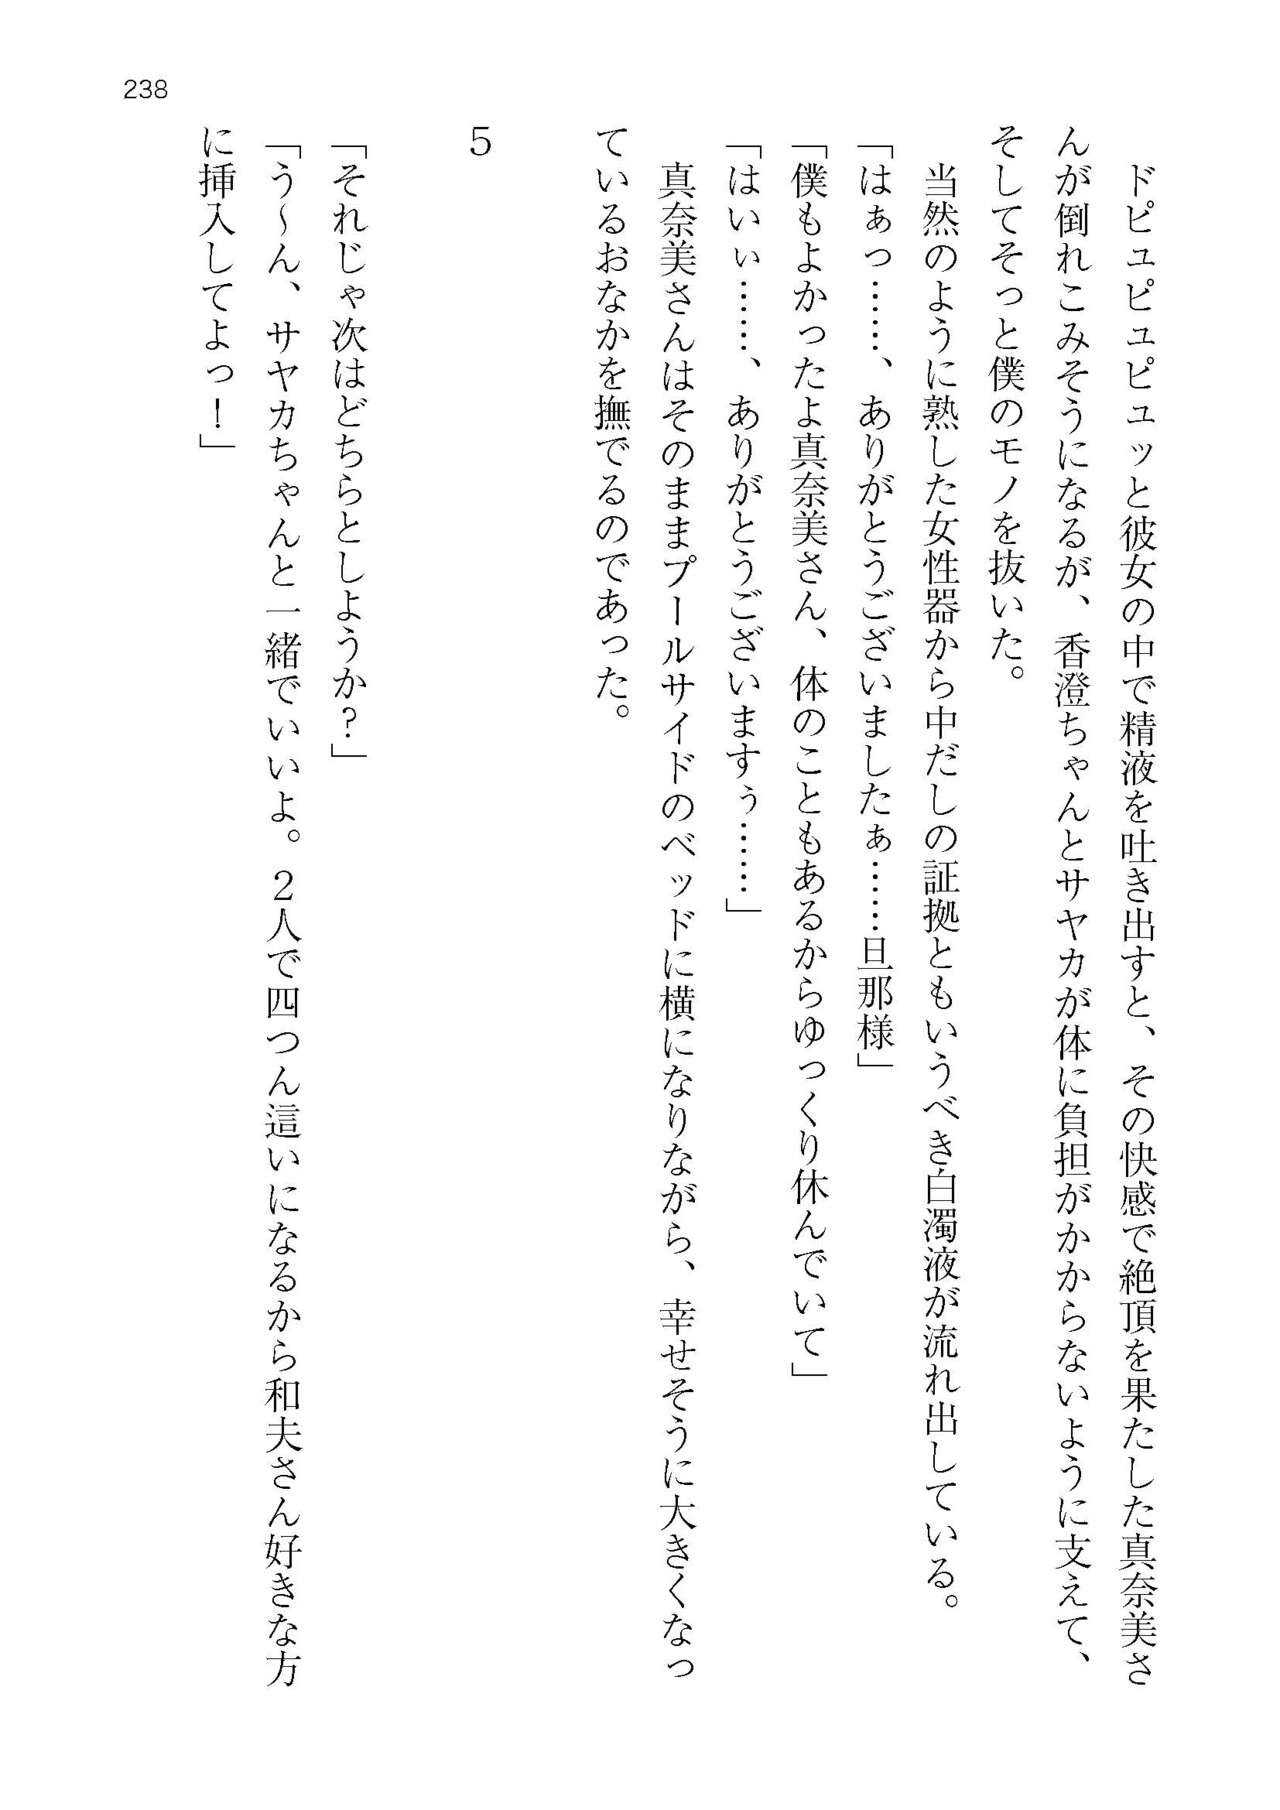 238
ドピュピュピュッと彼女の中で精液を吐き出すと、その快感で絶頂を果たした真奈美さ
んが倒れこみそうになるが、香澄ちゃんとサヤカが体に負担がかからないように支えて、
そしてそっと僕のモノを抜いた。
当然のように熟した女性器から中だしの証拠ともいうべき白濁液が流れ出している。
「はぁっ……、ありがとうございましたぁ……旦那様」
「僕もよかったよ真奈美さん、体のこともあるからゆっくり休んでいて」
「はいぃ……、ありがとうございますぅ……」
真奈美さんはそのままプールサイドのベッドに横になりながら、幸せそうに大きくなっ
ているおなかを撫でるのであった。
5
「それじゃ次はどちらとしようか？」
「う〜ん、サヤカちゃんと一緒でいいよ。２人で四つん這いになるから和夫さん好きな方
に挿入してよっ！」